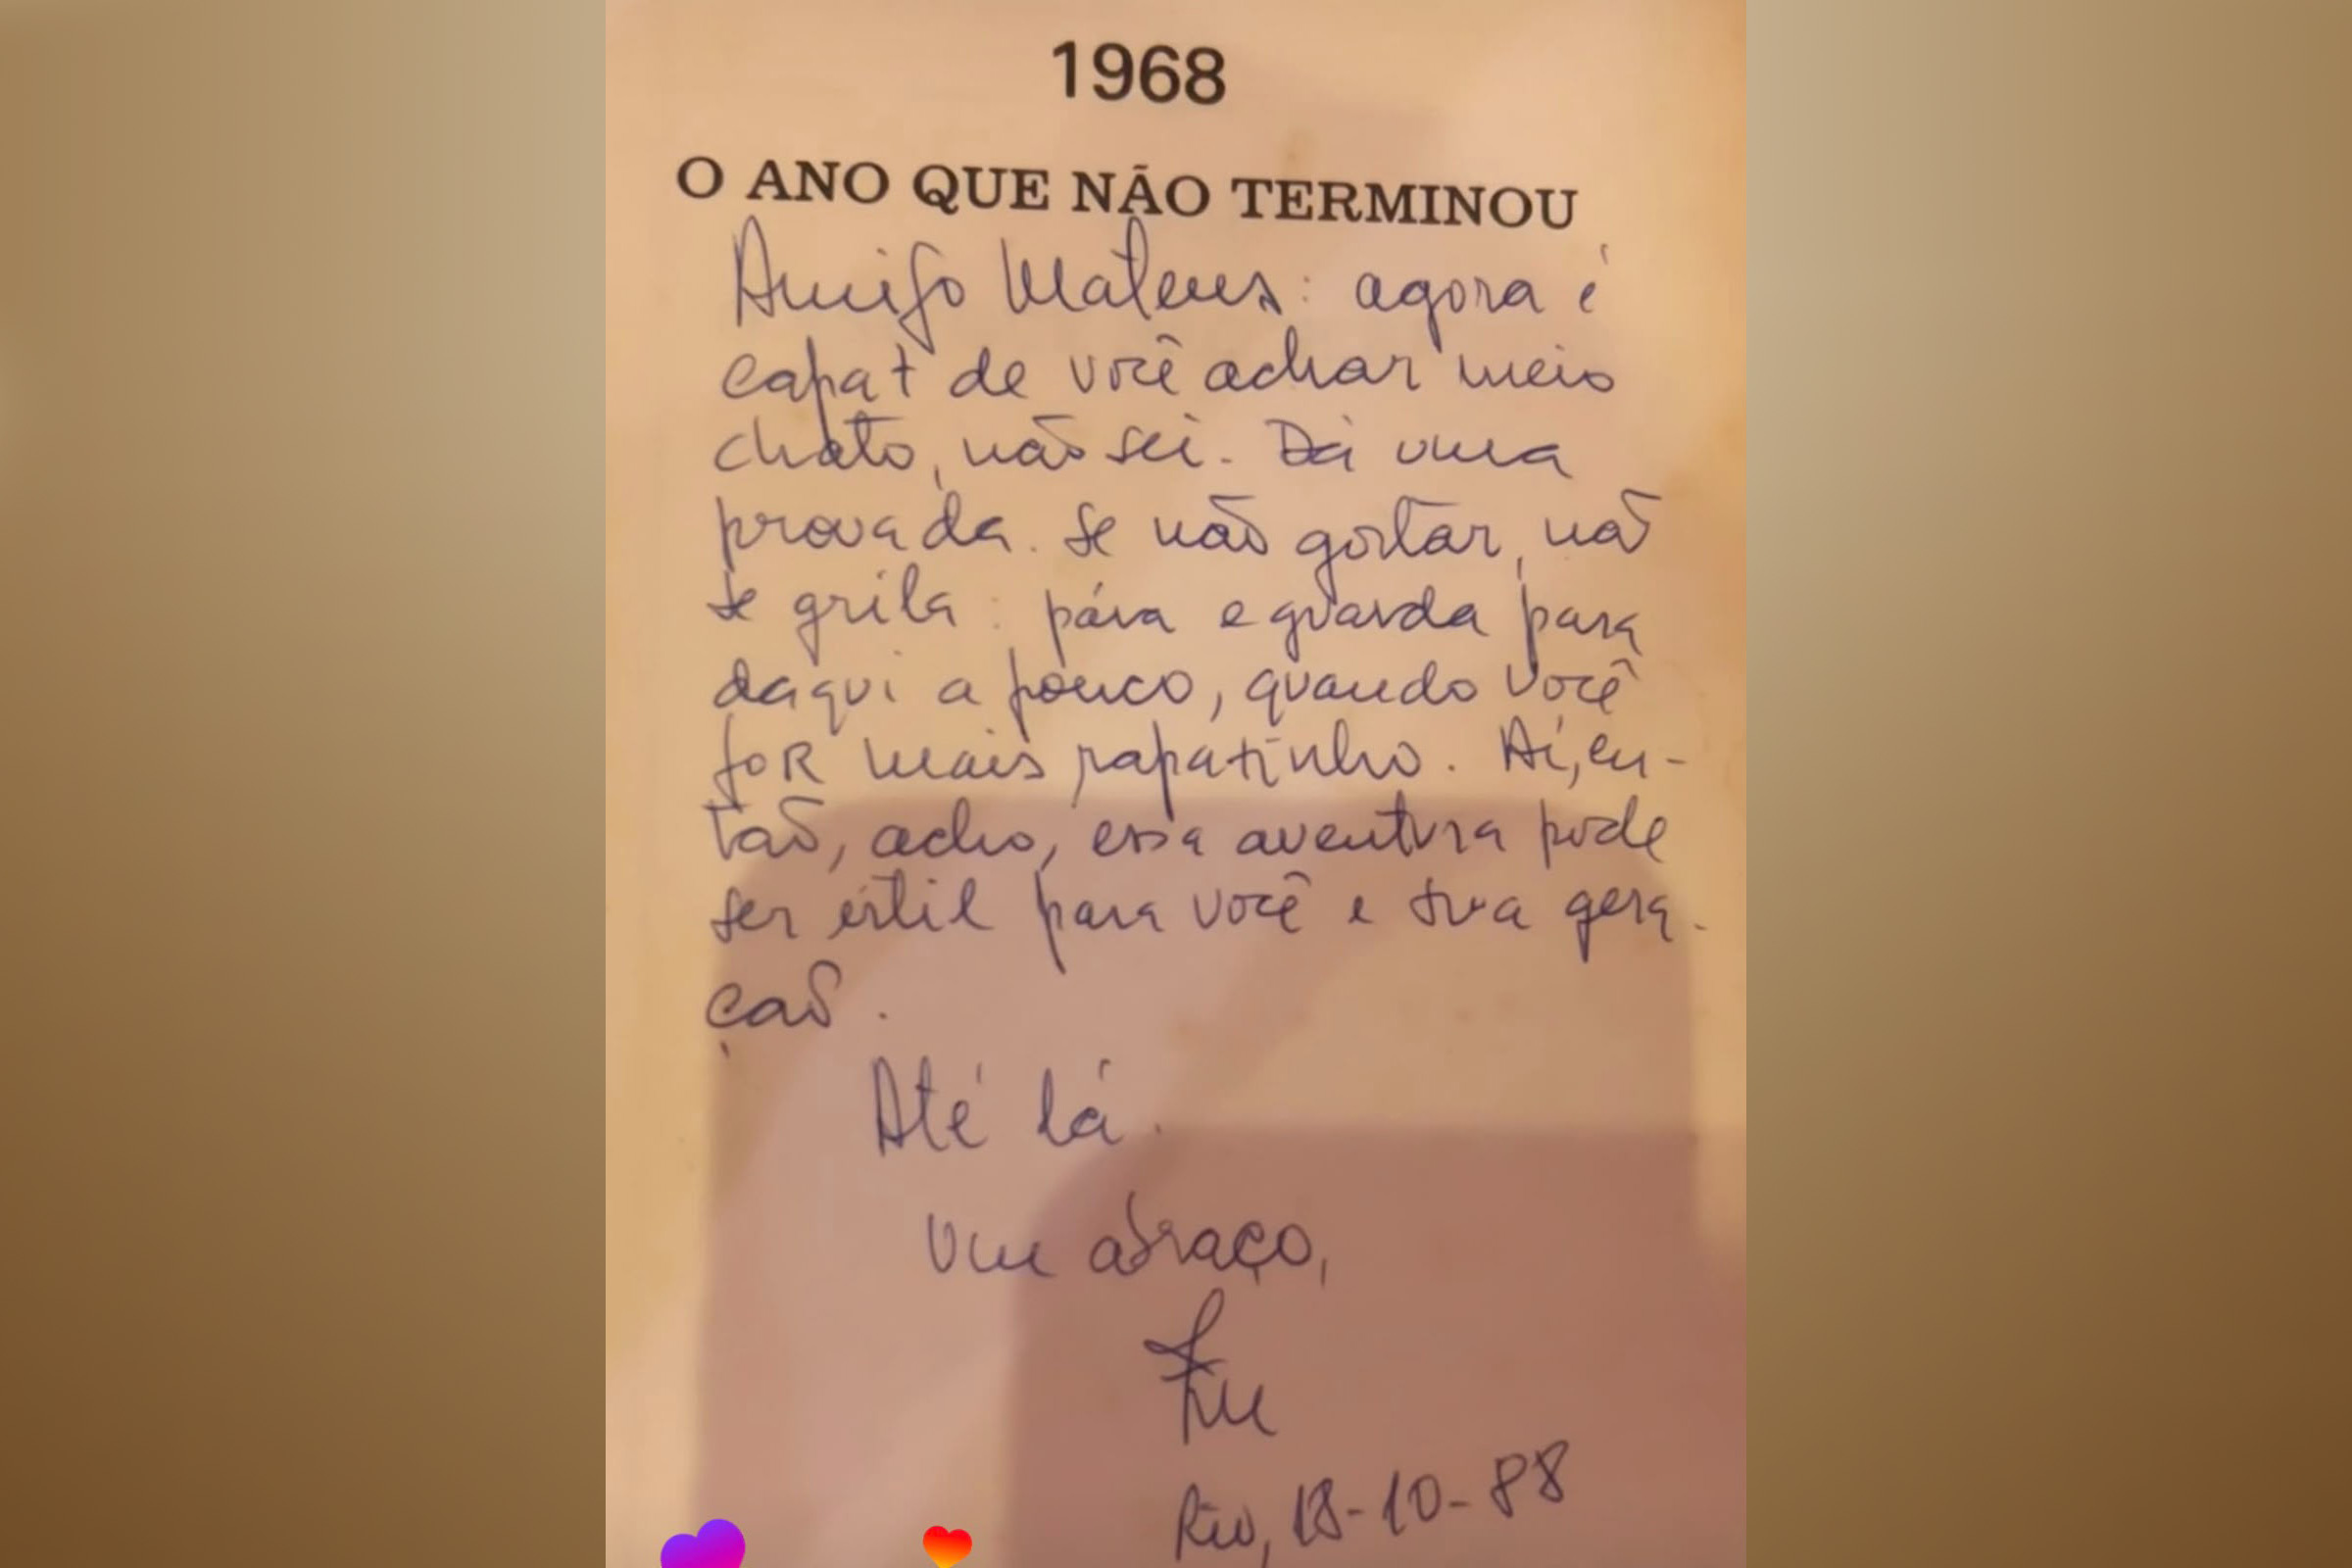 1968
O ANO QUE NÃO TERMINOU
Amigo Mateus: agora é
capaz de você achar meio
chato, não sei. Dá uma
provada. Se não gostar, não
se grila: pára e guarda para
daqui a pouco, quando você
for mais rapazinho. Aí, en-
tão, acho, essa aventura pode
ser útil para você e sua gera-
ção.
Até lá.
Um abraço,
Rio, 18-10-88